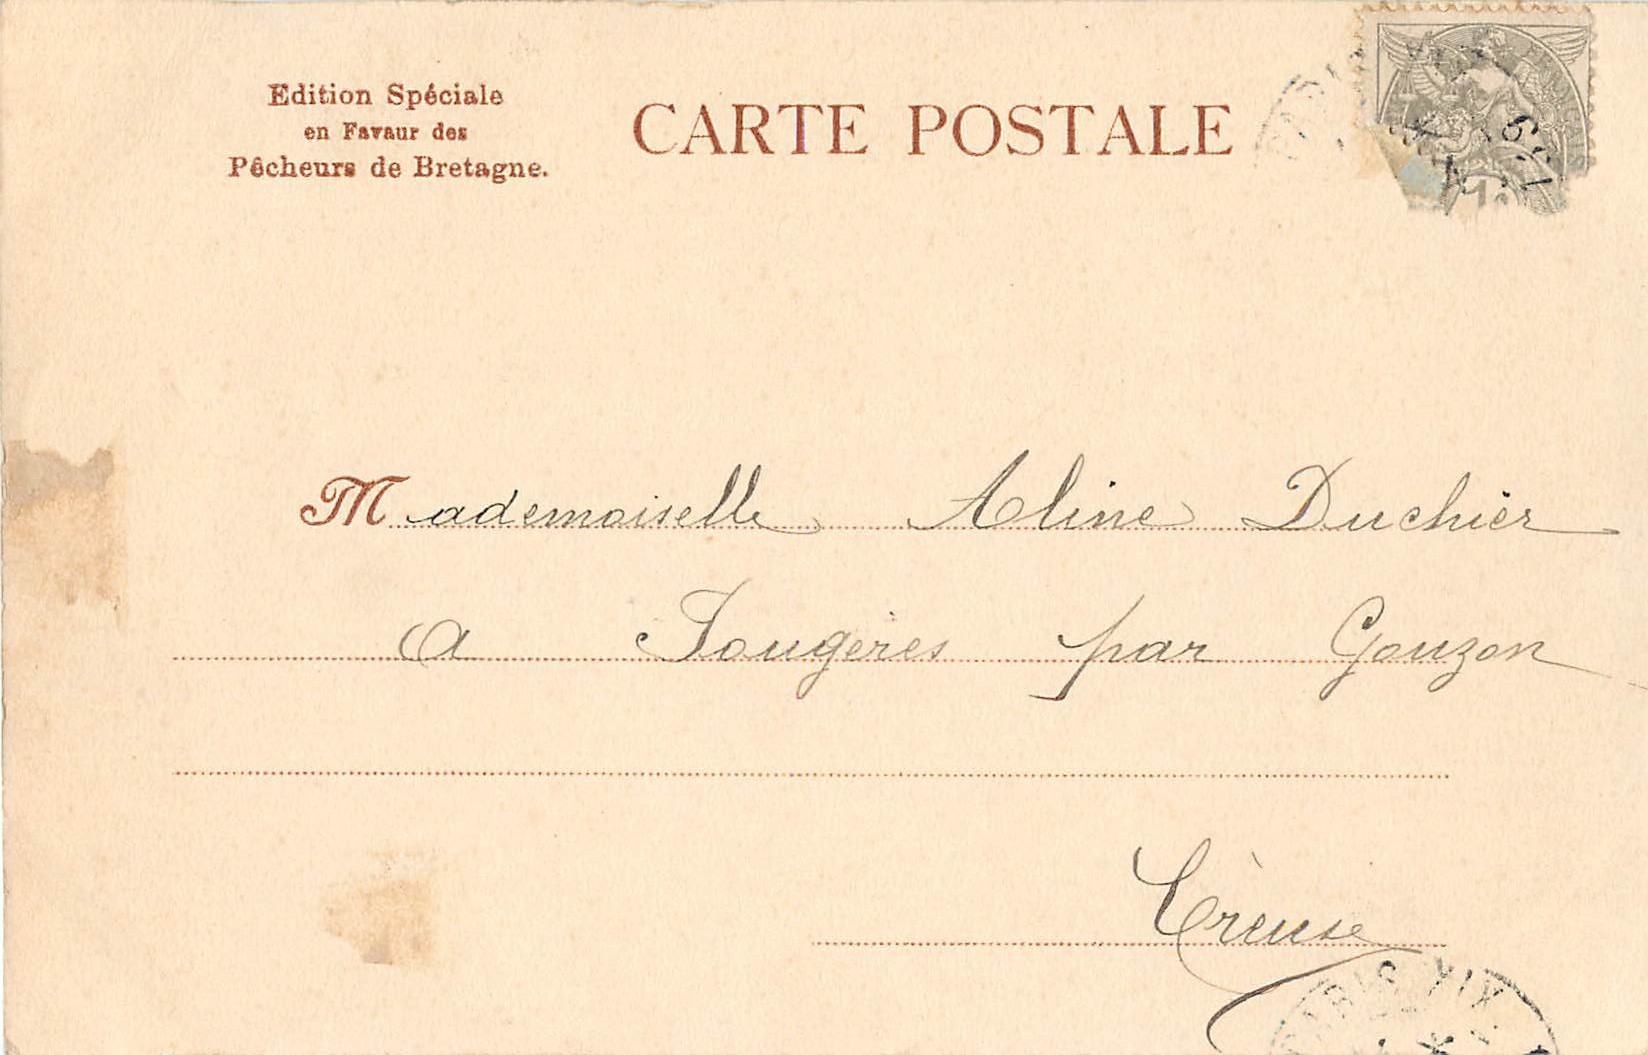 Edition Spéciale
en Favaur des
Pêcheurs de Bretagne.
CARTE POSTALE
Mademoiselle Aline Duchier
a Fougères par Gouzon
Creuse
PARIS XIX